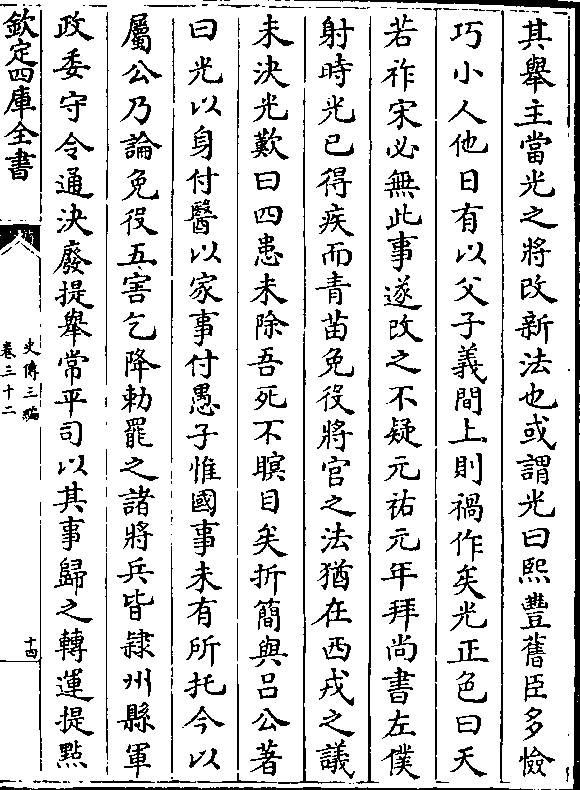 其舉主當光之將改新法也或謂光曰熙豐舊臣多憸
巧小人他日有以父子義間上則禍作矣光正色曰天
若祚宋必無此事遂改之不疑元祐元年拜尚書左僕
射時光已得疾而青苗免役將官之法猶在西戎之議
未決光歎曰四患未除吾死不瞑目矣折簡與呂公著
曰光以身付醫以家事付愚子惟國事未有所托今以
屬公乃論免役五害乞降勅罷之諸將兵皆隸州縣軍
政委守令通決廢提舉常平司以其事歸之轉運提㸃
欽定四庫全書
史傳三編
卷三十二
十四